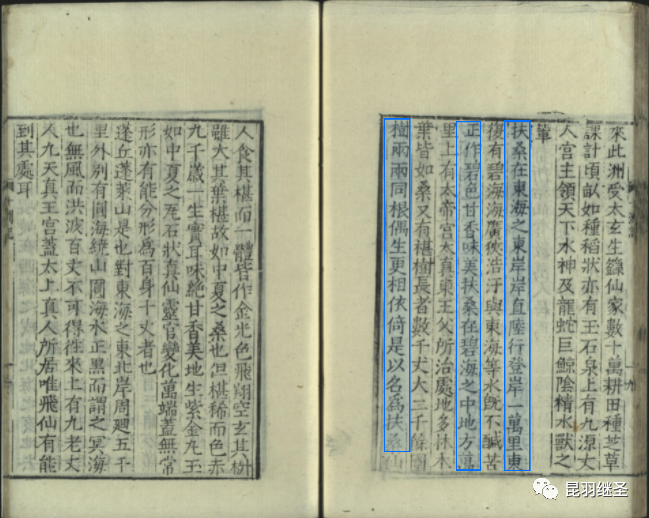 來此洲受太玄生籙仙家數十萬耕田種芝草
課計頃畝如種稻狀亦有玉石泉上有九源丈
人宮主領天下水神及龍蛇巨鯨陰精水獸之
輩
扶桑在東海之東岸岸直陸行登岸一萬里東
復有碧海海廣狹浩汙與東海等水旣不鹹苦
正作碧色甘香味美扶桑在碧海之中地方萬
里上有太帝宮太真東王父所治處地多林木
葉皆如桑又有椹樹長者數千丈大二千餘圍
樹兩兩同根偶生更相依倚是以名爲扶桑仙
人食其椹而一體皆作金光色飛翔空玄其樹
雖大其葉椹故如中夏之桑也但椹稀而色赤
九千歲一生實耳味絶甘香美地生紫金丸玉
如中夏之瓦石狀真仙靈官變化萬端蓋無常
形亦有能分形爲百身十丈者也
蓬丘蓬萊山是也對東海之東北岸周廻五千
里外別有圓海繞山圓海水正黑而謂之冥海
也無風而洪波百丈不可得徃來上有九老丈
人九天真王宮蓋太上真人所居唯飛仙有能
到其處耳
昆羽继圣